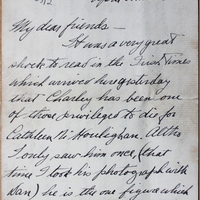 My dear friends —
It was a very great
shock to read in the Irish Times
which arrived here yesterday
that Charley has been one
of those privileged to die for
Cathleen Ni Houlighan. Altho
I only saw him once, (that
time I took his photograph with
Dan) he is the one figure which